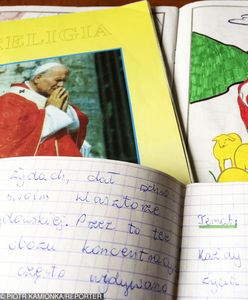 RELIGIA
Żydach, dał
swoim klasztorze
ydowskiej. Przez to też
obozu koncentracyj
często widywano
Temat:
Każdy
© PIOTR KAMIONKA/REPORTER